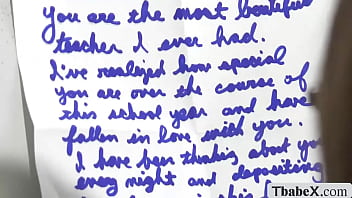 You are the most beautiful
teacher I ever had.
I've realized how special
you are over the course of
this school year and have
fallen in love with you.
I have been thinking about you
every night and depositing
TbabeX.com